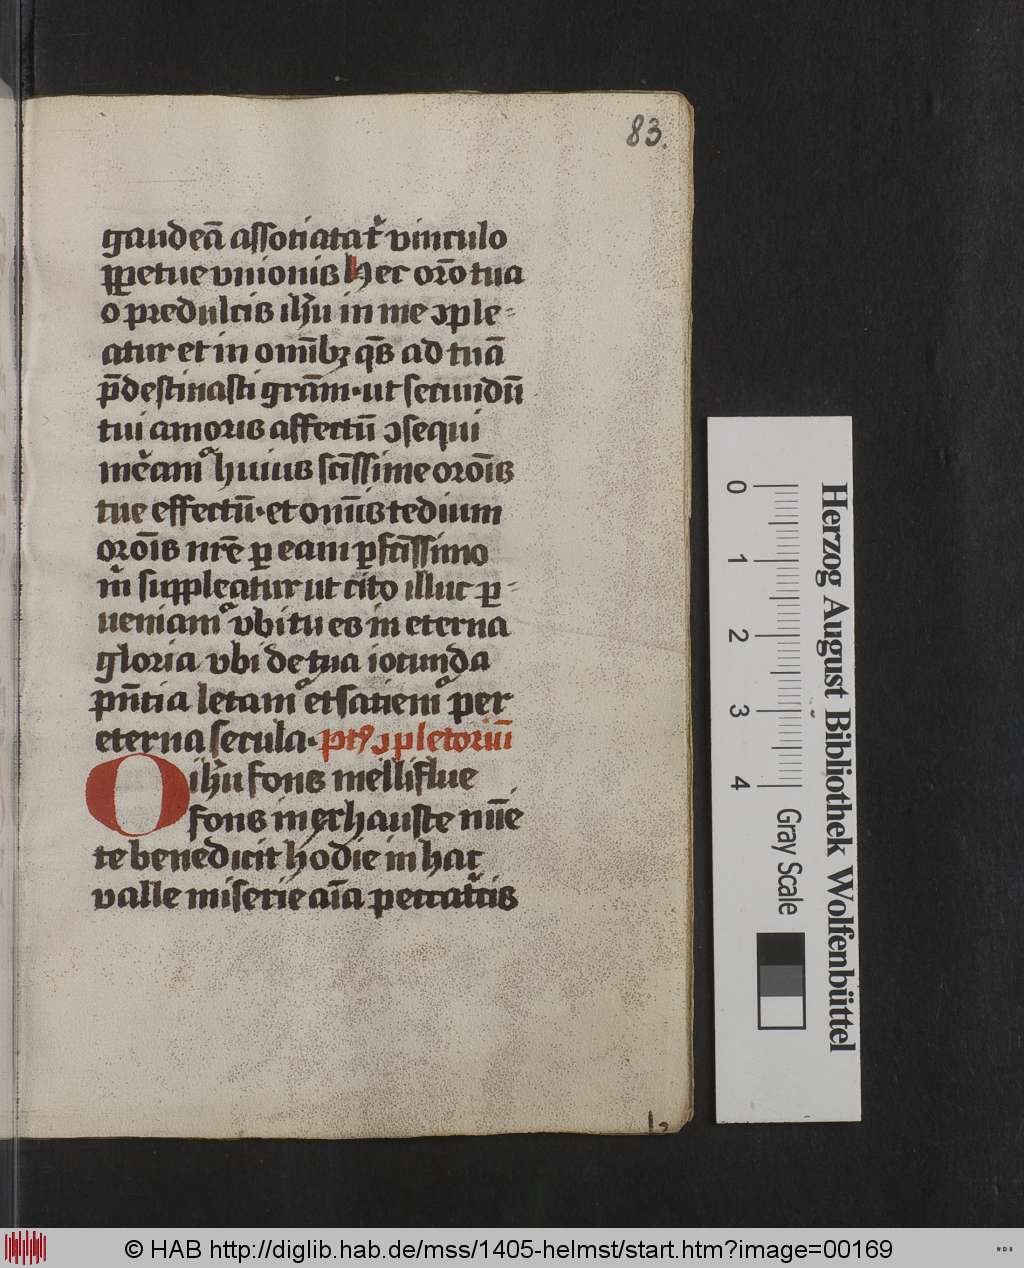 83.
gaudeā assotiatat᷑ vinculo
ꝑpetue vnionis hec or̄o tua
o predulcis ih̄u in me ɔple⸗
atur et in om̄ibꝫ q̄s ad tuā
p̄destinasti gr̄am · ut secundū
tui amoris affectū ɔsequi
me᷑camꝰ huius sc̄issime or̄ois
tue effectū · et om̄is tedium
or̄ois nr̄e ꝑ eam ꝑfc̄issimo
m̄ suppleatur ut cito illuc ꝑ⸗
ueniamꝰ vbi tu es in eterna
gloria vbi de tua iocunda
pn̄tia letamꝰ et satiemꝰ per
eterna secula · ptꝰ ɔpletoriū
O ih̄u fons melliflue
fons inexhauste nūe
te benedicit hodie in hac
valle miserie aīa peccat᷑cis
Herzog August Bibliothek Wolfenbüttel
0 1 2 3 4
Gray Scale
© HAB http://diglib.hab.de/mss/1405-helmst/start.htm?image=00169